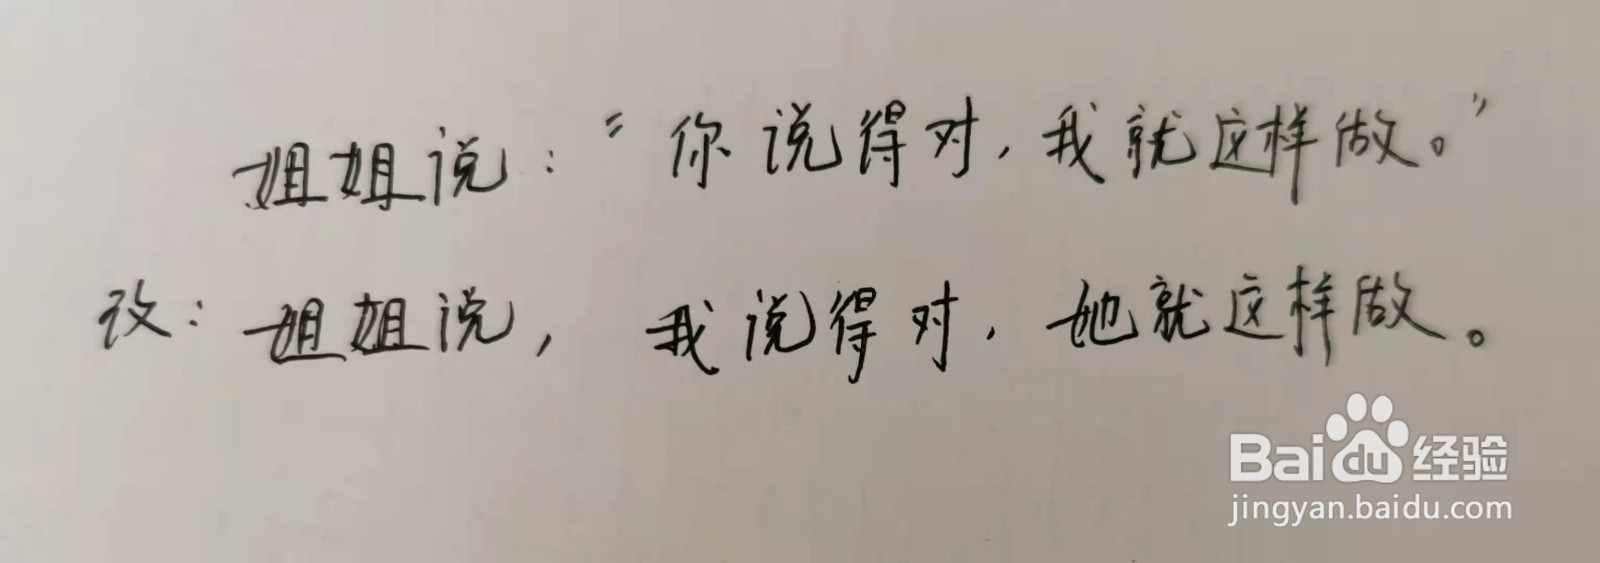 姐姐说：“你说得对，我就这样做。”
改：姐姐说，我说得对，她就这样做。
Baidu经验
jingyan.baidu.com